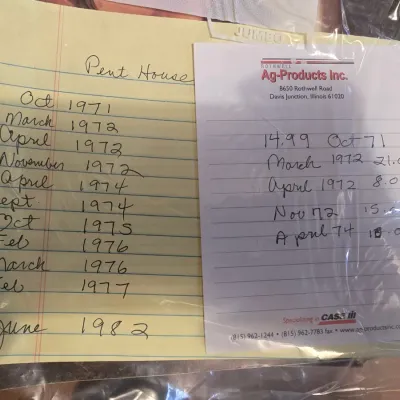 JUMBO
Pent House
Oct 1971
March 1972
April 1972
November 1972
April 1974
ept 1974
Oct 1975
Feb 1976
March 1976
Feb 1977
June 1982
ROTHWELL
Ag-Products Inc.
8650 Rothwell Road
Davis Junction, Illinois 61020
14.99 Oct 71
March 1972 21.0
April 1972 8.0
Nov 72 15.
April 74 18.0
Specializing in CASE IH
(815) 962-1244 • (815) 962-7783 fax • www.ag-productsinc.co